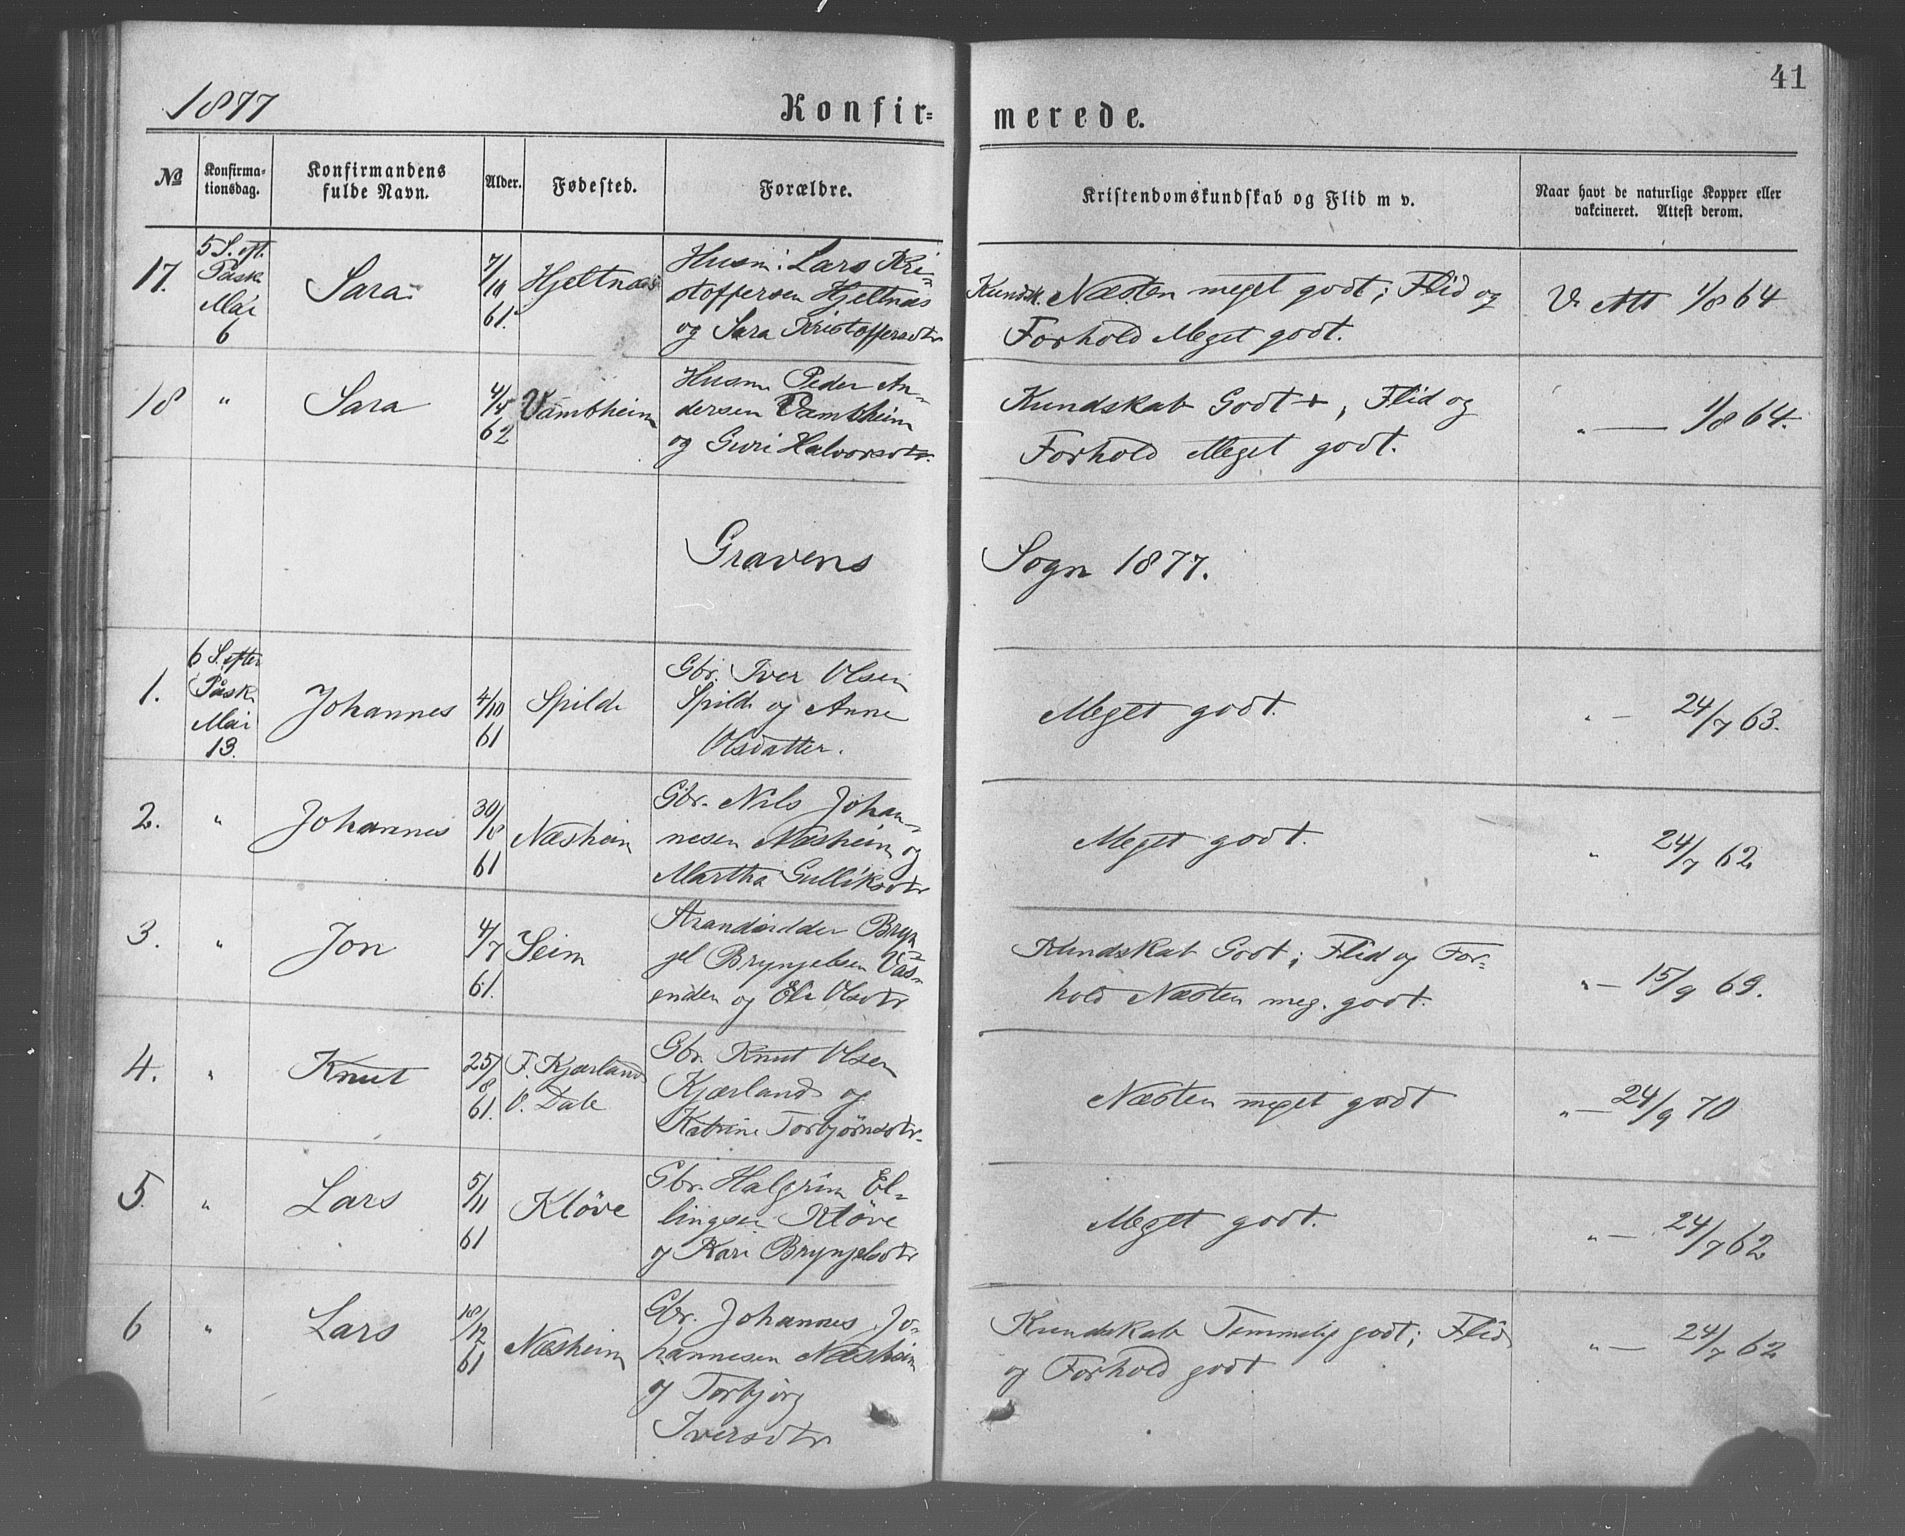 41
1877
Konfir=
merede.
No
Konfirma-
tionsdag.
Konfirmandens
fulde Navn.
Alder.
Fødested.
Forældre.
Kristendomskundskab og Flid m v.
Naar havt de naturlige Kopper eller
vakcineret. Attest derom.
17.
5 S. eft.
Påsk
Mai
6
Sara
7/10
61.
Hjeltnæs
Husm. Lars Kri-
stoffersen Hjeltnæs
og Sara Kristoffersdtr
Kundsk. Næsten meget godt; Flid og
Forhold Meget godt.
V. Att 1/8 64
18
"
Sara
4/5
62
Vambheim
Husm. Peder An-
dersen Vambheim
og Guri Halvorsdtr.
Kundskab Godt +, Flid og
Forhold Meget godt.
" — 1/8 64.
Gravens
Sogn 1877.
1.
6 S. efter
Påsk
Mai
13.
Johannes
4/10
61
Spilde
Gbr. Iver Olsen
Spilde og Anne
Olsdatter.
Meget godt.
" — 24/7 63.
2.
"
Johannes
30/8
61
Næsheim
Gbr. Nils Johan-
nesen Næsheim og
Martha Gulliksdtr
Meget godt.
" 24/7 62
3.
"
Jon
4/7
61.
Seim
Strandsidder Bryn-
jel Brynjelsen Vas-
enden og Eli Olsdtr
Kundskab Godt; Flid og For-
hold Næsten meg. godt.
" — 15/9 69.
4.
"
Knut
25/8
61.
F. Kjærland
O. Dale
Gbr. Knut Olsen
Kjærland og
Katrine Torbjørnsdtr.
Næsten meget godt
" — 24/9 70
5.
"
Lars
5/11
61
Kløve
Gbr. Halgrim El-
lingsen Kløve
og Kari Brynjelsdtr
Meget godt.
" — 24/7 62
6
"
Lars
18/12
61
Næsheim
Gbr. Johannes Jo-
hannesen Næsheim
og Torbjørg
Iversdtr
Kundskab Temmelig godt; Flid
og Forhold godt
" — 24/7 62